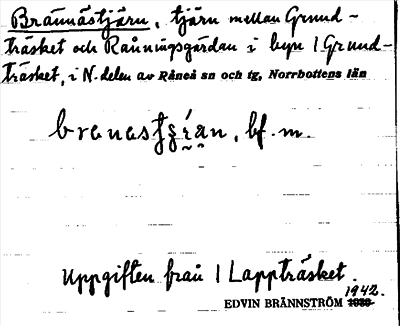 Brännästjärn, tjärn mellan Grund-
träsket och Rånningsgårdan i byn 1 Grund-
träsket, i N. delen av Råneå sn och tg, Norrbottens län
bf. m.
Uppgiften från 1 Lappträsket.
1942.
EDVIN BRÄNNSTRÖM 1939